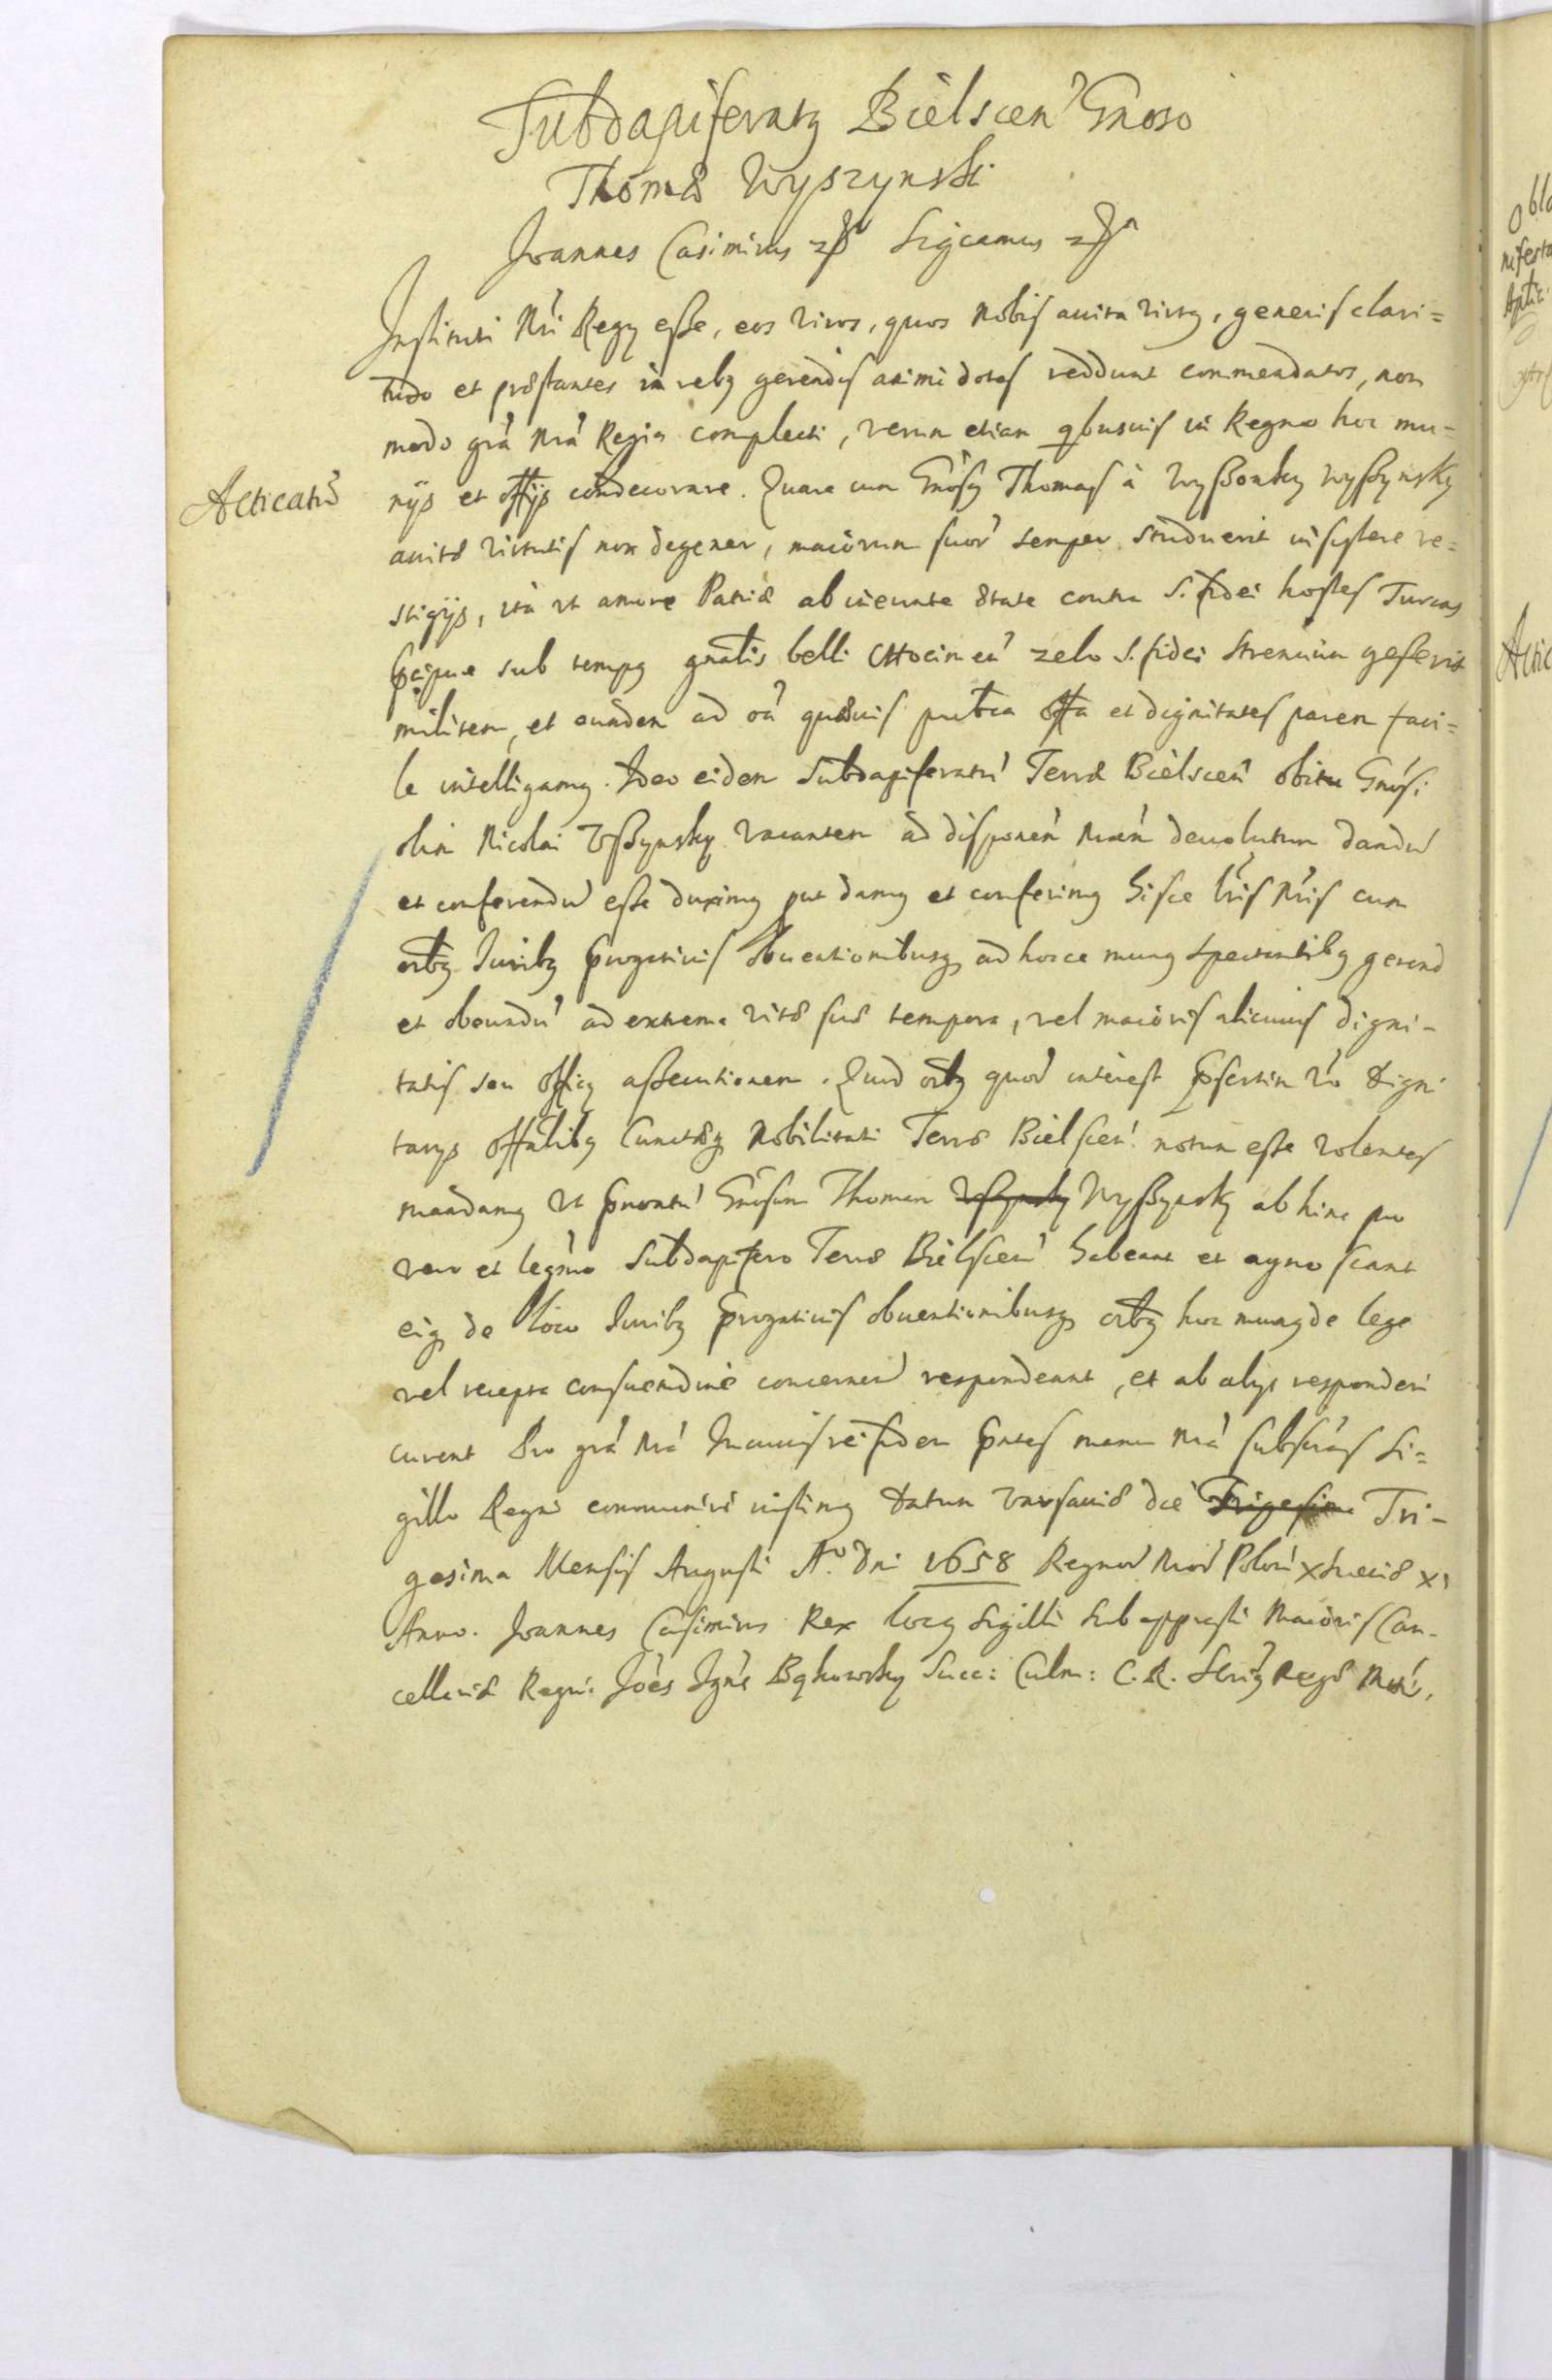 Subdapiferatq Bielscen Gnoso
Thomæ Wyszynski
Joannes Casimirus etc Sigcamus etc
Instituti Nri Regy esse, eos viros, quos Nobis auita virtq, generis clari=
tudo et præstantes in rebq gerendis animi dotes reddunt commendatos, non
modo gra nra Regia complecti, verum etiam qbusuis in Regno hoc mu=
Acticatu
nijs et offijs condecorare. Quare cum Gnosq Thomas à Wyßonky Wyßynsky
auitæ virtutis non degener, maiorum suor semper studuerit insistere ve=
stigijs, ità vt amore Patriæ ab ineunte ætate contra S. fidei hostes Turcas
pcipue sub tempq gnalis belli Chocimen zelo S. fidei strenuum gesserit
militem, et eundem ad oa quæuis publica offa et dignitates parem faci=
le intelligamq. Ideo eidem Subdapiferatu Terræ Bielscen obitu Gnosi
olim Nicolai Vßynsky vacantem ad disponen nram deuolutum dandu
et conferendu esse duximq put damq et conferimq hisce lris nris cum
oibq Iuribq progatiuis obuentionibusq ad hocce munq spectantibq gerend
et obeundu ad extrema vitæ suæ tempora, vel maioris alicuius digni-
tatis seu officij assecutionem. Quod oibq quor interest psertim vo digni
tarijs offalibq cunctæq Nobilitati Terræ Bielscen notum esse volentes
mandamq vt pnonatu Gnosum Thomam Vßynsky Wyßynsky ab hinc pro
vero et legmo Subdapifero Terræ Bielscen habeant et agnoscant
eiq de loco Iuribq progatiuis obuentionibusq oibq hoc munq de lege
vel recepta consuetudine concernen respondeant, et ab alijs responderi
curent pro gra nra In cuius rei fidem pntes manu nra subscras Si=
gillo Regni communiri iussimq Datum Varsauiæ die Trigesima Tri-
gesima Mensis Augusti A.o Dni 1658 Regnor nror Poloni X Sueciæ XI
Anno. Joannes Casimirus Rex locq sigilli sub appressi Maioris Can-
cellariæ Regni Joes Igne Bąkowsky Succ: Culm: C. R. Scrig Regæ Mtis.